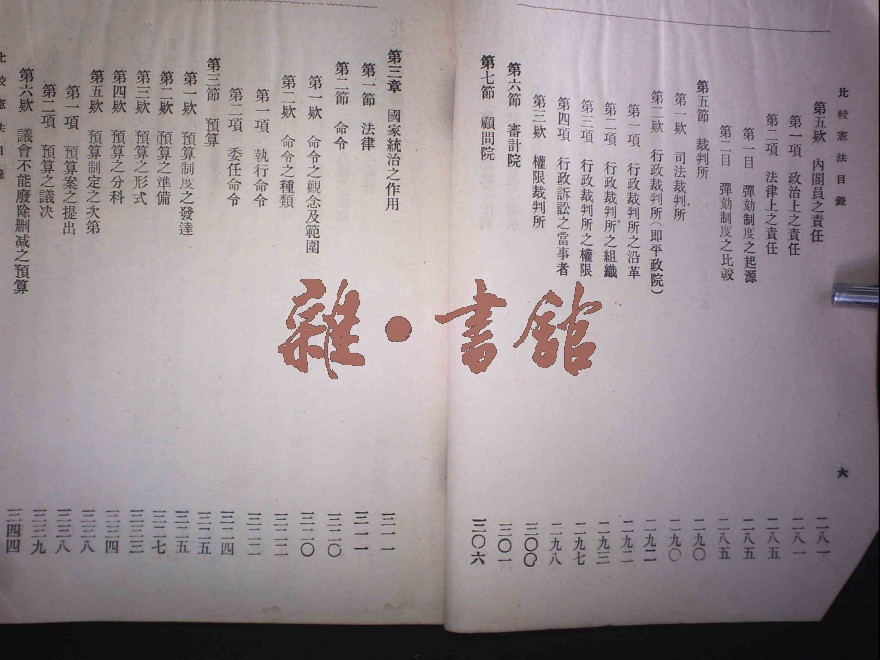 比較憲法目錄
六
第五欵 內閣員之責任 二八一
第一項 政治上之責任 二八一
第二項 法律上之責任 二八五
第一目 彈劾制度之起源 二八五
第二目 彈劾制度之比較 二八五
第五節 裁判所 二九〇
第一欵 司法裁判所 二九〇
第二欵 行政裁判所(即平政院) 二九二
第一項 行政裁判所之沿革 二九二
第二項 行政裁判所之組織 二九三
第三項 行政裁判所之權限 二九七
第四項 行政訴訟之當事者 二九八
第三欵 權限裁判所 三〇〇
第六節 審計院 三〇一
第七節 顧問院 三〇六
第三章 國家統治之作用 三一一
第一節 法律 三一一
第二節 命令 三二〇
第一欵 命令之觀念及範圍 三二〇
第二欵 命令之種類 三二二
第一項 執行命令 三二二
第二項 委任命令 三二四
第三節 預算 三二五
第一欵 預算制度之發達 三二五
第二欵 預算之準備 三二七
第三欵 預算之形式 三三三
第四欵 預算之分科 三三四
第五欵 預算制定之次第 三三八
第一項 預算案之提出 三三八
第二項 預算之議決 三三九
第六欵 議會不能廢除刪減之預算 三四四
比較憲法目錄
雜·書館